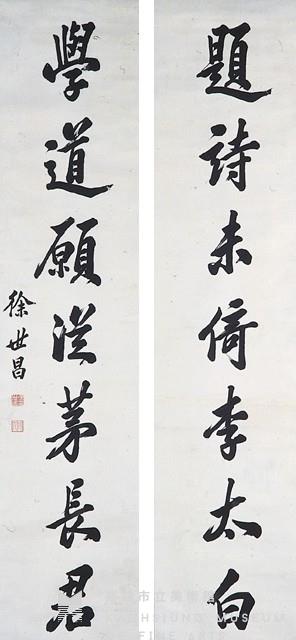 題詩未倚李太白
學道願從茅長君
徐世昌
市立美術館
KAOHSIUNG MUSEUM
FINE ARTS